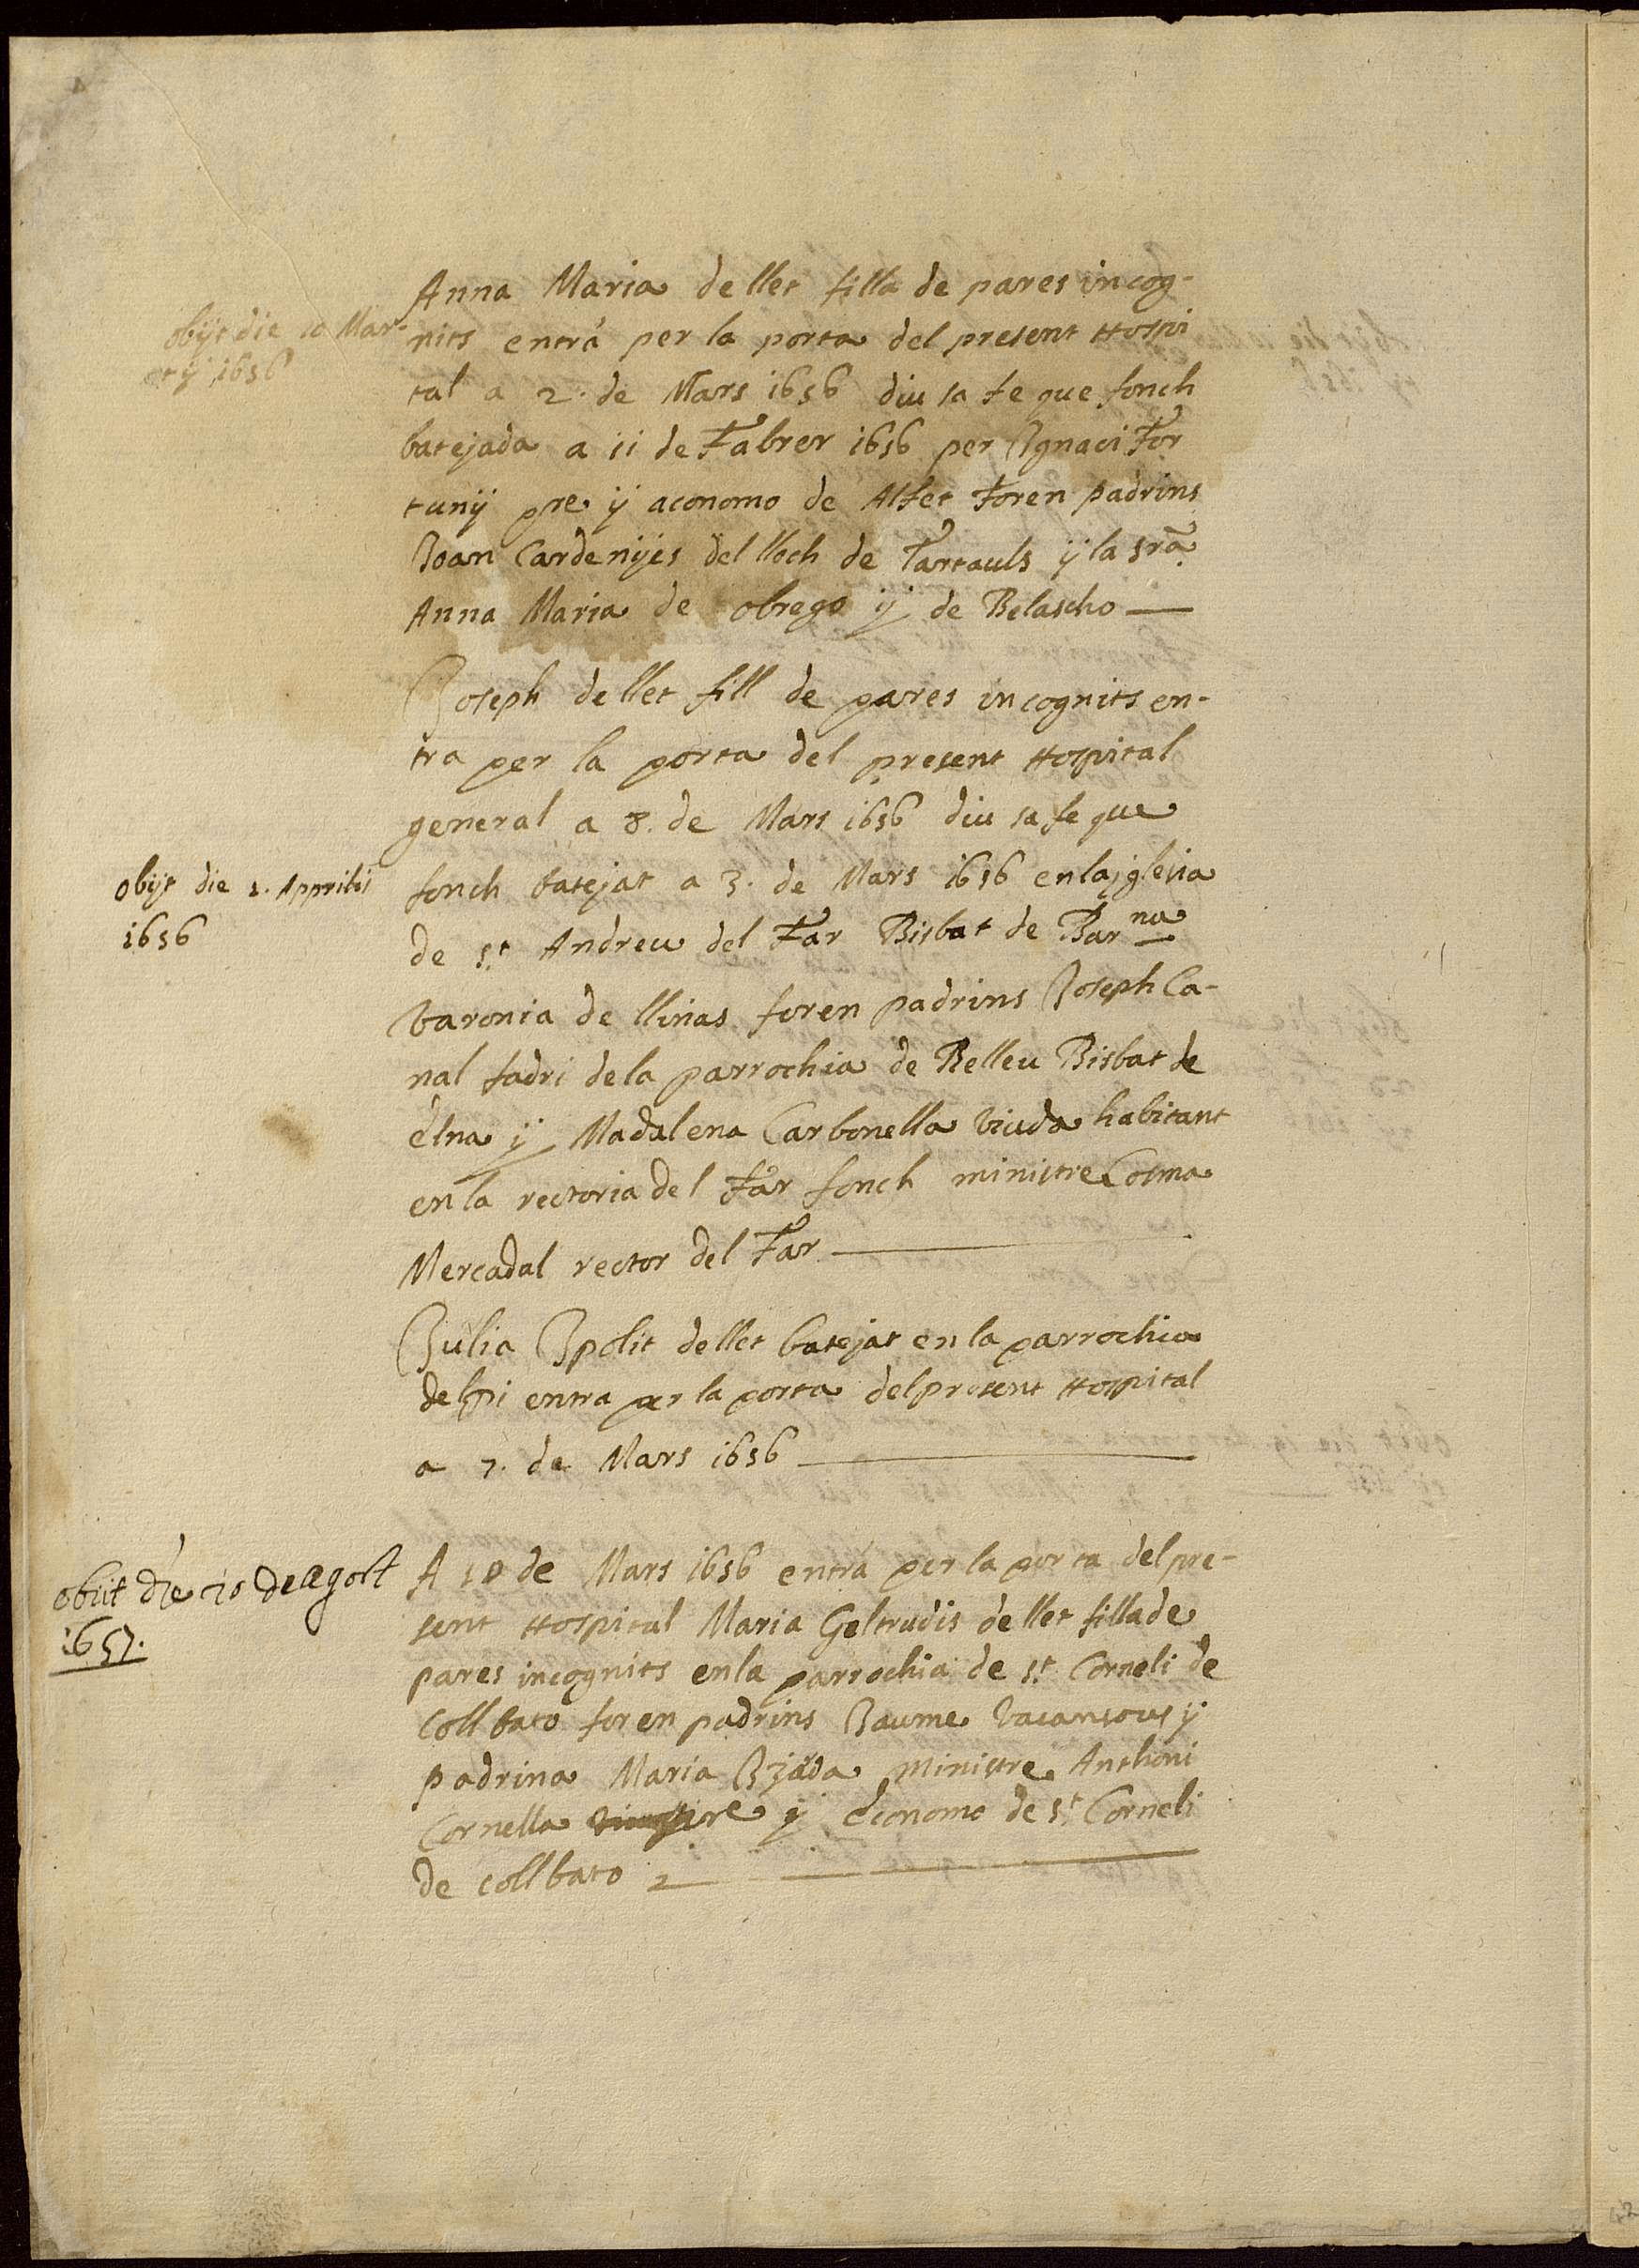 Anna Maria de llet filla de pares incog-
nits entrà per la porta del present Hospi
tal a 2. de Mars 1656 diu sa fe que fonch
batejada a 11 de Fabrer 1656 per Ignaci For
tunÿ pre ÿ aconomo de Alfet foren padrins
Joan Cardenÿes del lloch de Tartauls ÿ la sra
Anna Maria de obrego ÿ de Belascho
obÿt die 10 Mar-
tÿ 1656
Joseph de llet fill de pares incognits en-
tra per la porta del present Hospital
general a 8. de Mars 1656 diu sa fe que
fonch batejat a 3. de Mars 1656 en la jglesia
de st Andreu del Far Bisbat de Barna
baronia de llinas foren padrins Joseph Ca-
nal fadri de la parrochia de Relleu Bisbat de
elna ÿ Madalena Carbonella viuda habitant
en la rectoria del Far fonch ministre Cosma
Mercadal rector del Far
obÿt die 1. Apprilis
1656
Julia Ipolit de llet batejat en la parrochia
del pi entra per la porta del present Hospital
a 7. de Mars 1656
A 10 de Mars 1656 entrà per la porta del pre-
sent Hospital Maria Geltrudis de llet filla de
pares incognits en la parrochia de st Corneli de
Coll bato foren padrins Jaume Vacarisous ÿ
padrina Maria ministre Anthoni
Cornella pre ÿ economo de st Corneli
de coll bato
obiit die 20 de agost
1657.